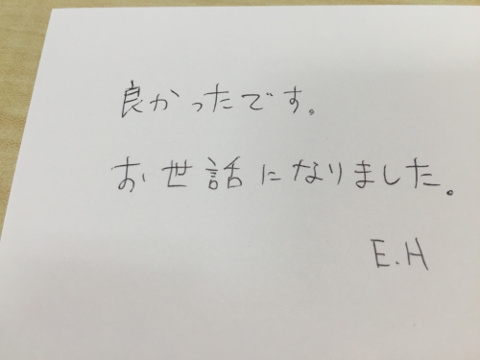 良かったです。
お世話になりました。
E.H